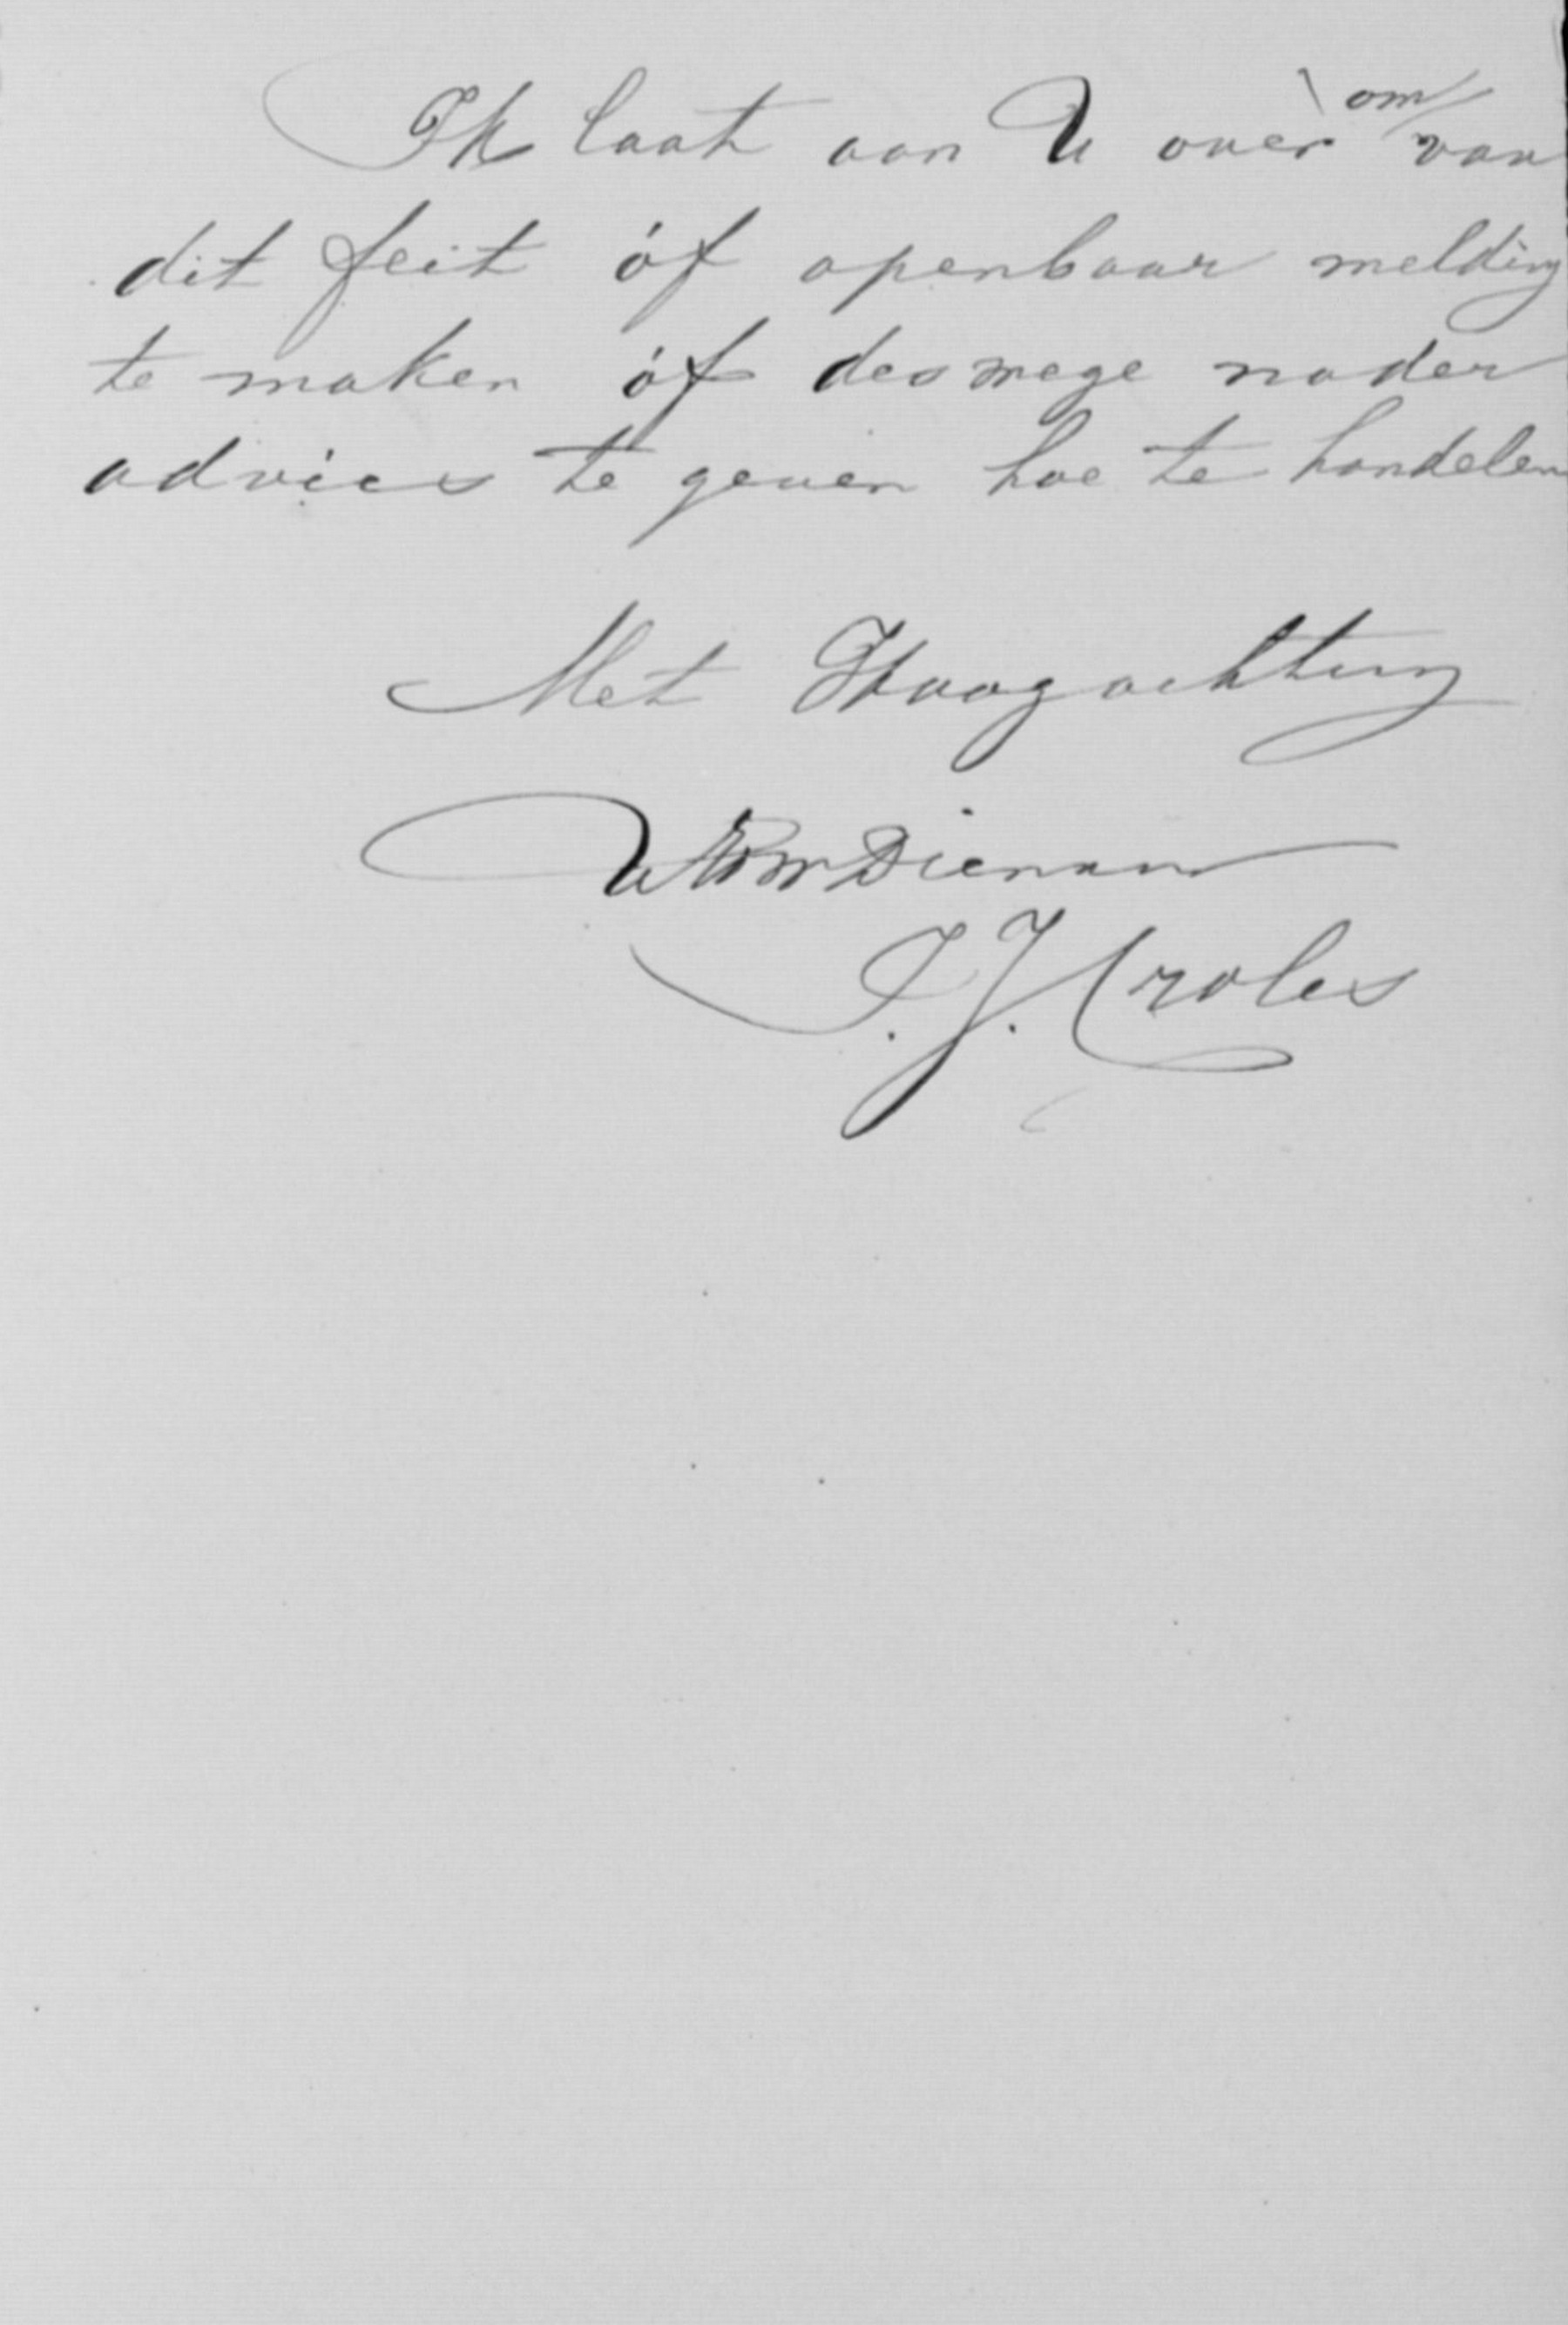 Ik laat aan U over om van
dit feit óf openbaar melding
te maken óf deswege nader
advies te geven hoe te handelen
Met Hoogachting
U Dienaar
J. J. Croles